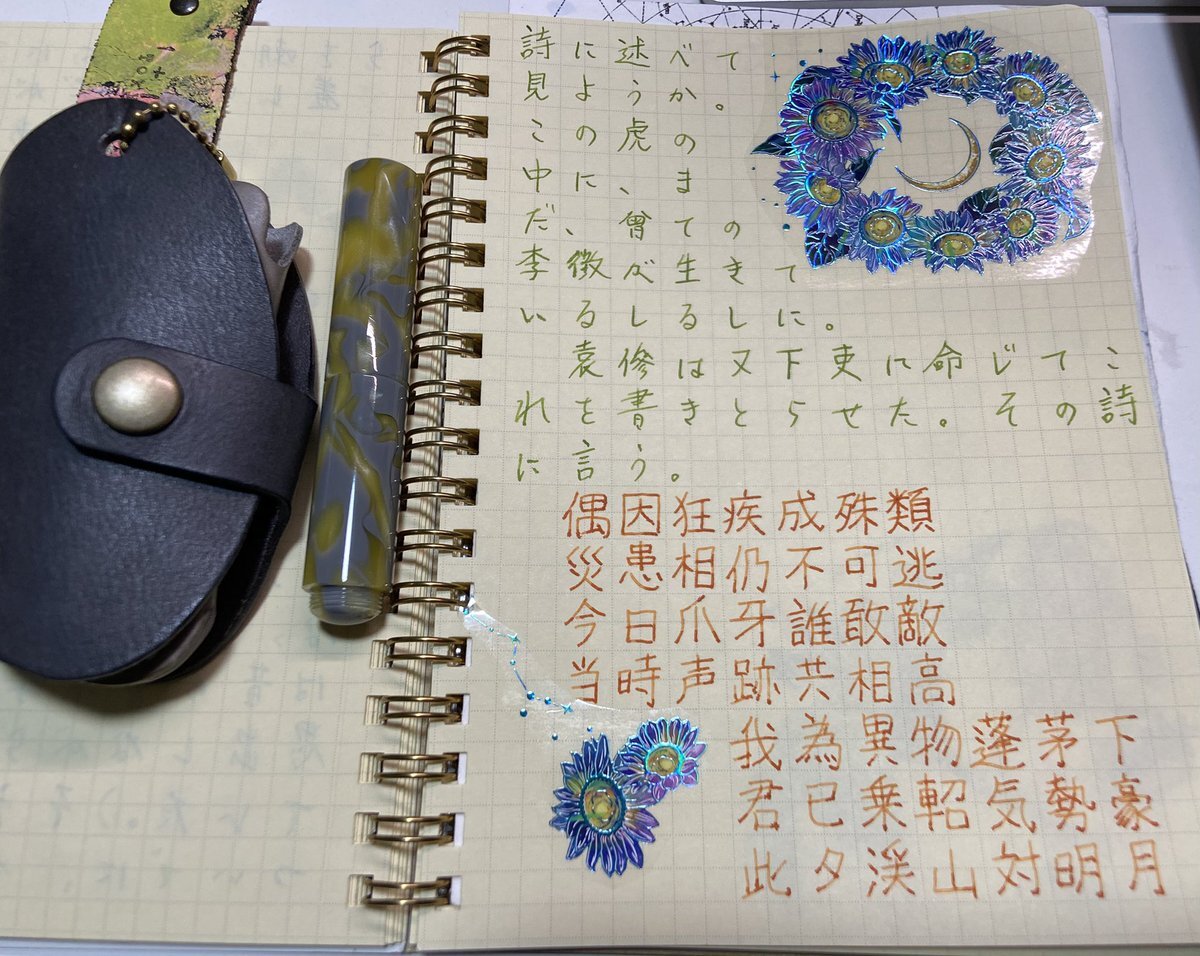 詩に述べて
見ようか。
この虎の
中に、ま
だ、曾ての
李徴が生きて
いるしるしに。
袁傪は又下吏に命じてこ
れを書きとらせた。その詩
に言う。
偶因狂疾成殊類
災患相仍不可逃
今日爪牙誰敢敵
当時声跡共相高
我為異物蓬茅下
君已乗軺気勢豪
此夕渓山対明月